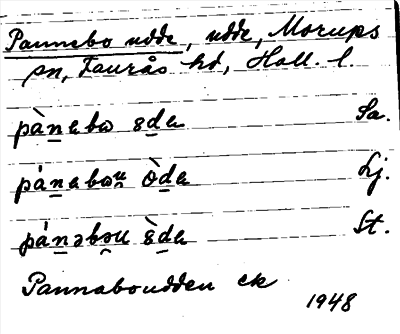 Pannebo udde, udde, Morups
sn, Faurås hd, Hall. l.
pànabω 8da Sa.
pánabωu̯ òda Lj.
pánəbo̯u 8̀da St.
Pannaboudden ek
1948